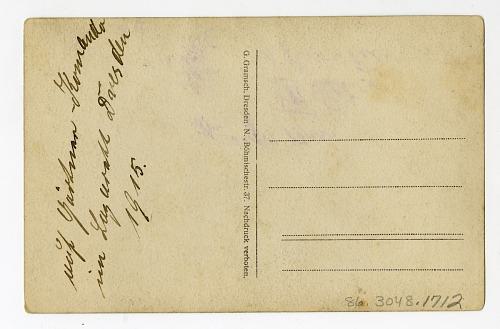 Gärtner Kommando
im Lazarett Dresden
1915.
G. Gramsch, Dresden-N., Böhmischestr. 37. Nachdruck verboten.
86.3048.1712